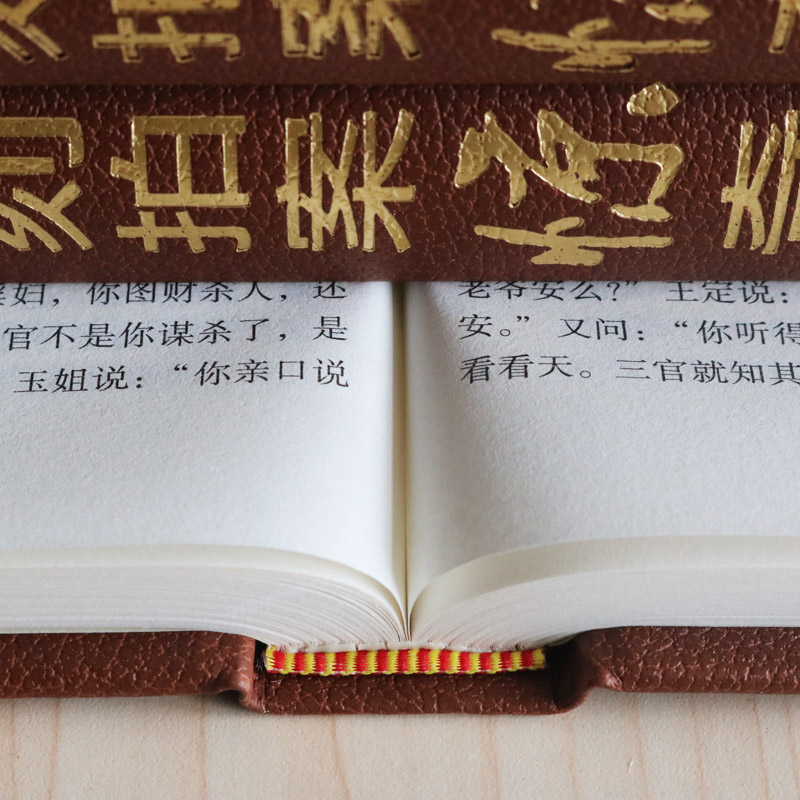 拍案驚
妇，你图财杀人，还
官不是你谋杀了，是
玉姐说：“你亲口说
老爷安么？”王定说：
安。”又问：“你听得
看看天。三官就知其